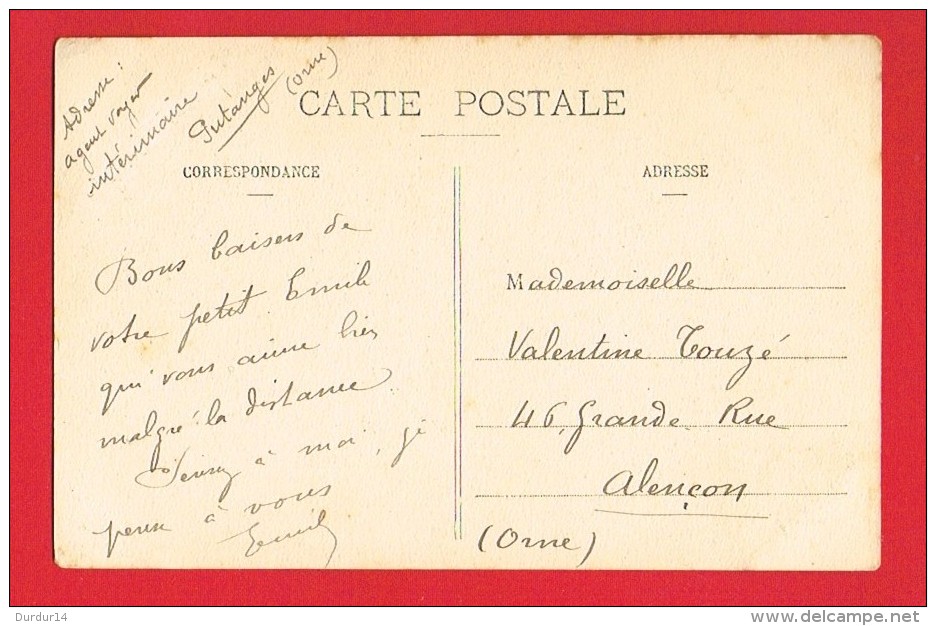 Adresse :
agent voyer
intérimaire
Putanges
(Orne)
CARTE POSTALE
CORRESPONDANCE
Bons baisers de
votre petit Emile
qui vous aime bien
malgré la distance
Pensez à moi, je
pense à vous
Emile
ADRESSE
Mademoiselle
Valentine Touzé
46, Grande Rue
Alençon
(Orne)
Durdur14
www.delcampe.net